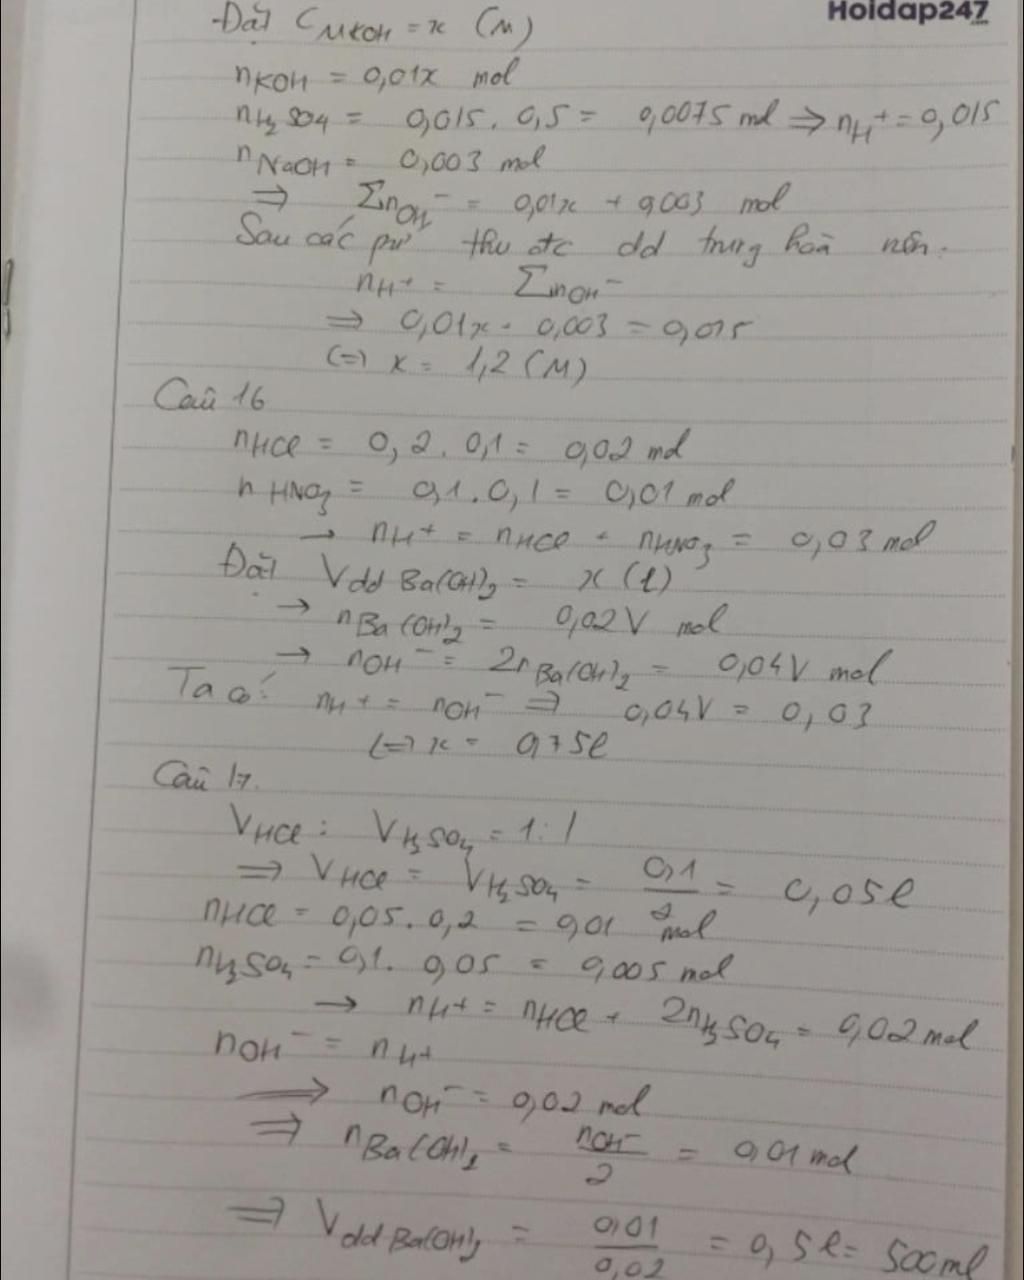 Hoidap247
Đặt CMKOH = x (M)
nKOH = 0,01x mol
nH2SO4 = 0,015. 0,5 = 0,0075 mol ⇒ nH+ = 0,015
nNaOH = 0,003 mol
⇒ ΣnOH- = 0,01x + 0,003 mol
Sau các pư thu đc dd trung hoà nên.
nH+ = ΣnOH-
⇒ 0,01x + 0,003 = 0,015
(=) x = 1,2 (M)
Câu 16
nHCl = 0,2. 0,1 = 0,02 mol
nHNO3 = 0,1. 0,1 = 0,01 mol
→ nH+ = nHCl + nHNO3 = 0,03 mol
Đặt Vdd Ba(OH)2 = x (l)
→ nBa(OH)2 = 0,02V mol
→ nOH- = 2nBa(OH)2 = 0,04V mol
Ta có: nH+ = nOH- ⇒ 0,04V = 0,03
(=) x = 0,75l
Câu 17.
VHCl : VH2SO4 = 1:1
⇒ VHCl = VH2SO4 = 0,1/2 = 0,05l
nHCl = 0,05. 0,2 = 0,01 mol
nH2SO4 = 0,1. 0,05 = 0,005 mol
→ nH+ = nHCl + 2nH2SO4 = 0,02 mol
nOH- = nH+
⇒ nOH- = 0,02 mol
⇒ nBa(OH)2 = nOH-/2 = 0,01 mol
⇒ Vdd Ba(OH)2 = 0,01/0,02 = 0,5l = 500ml